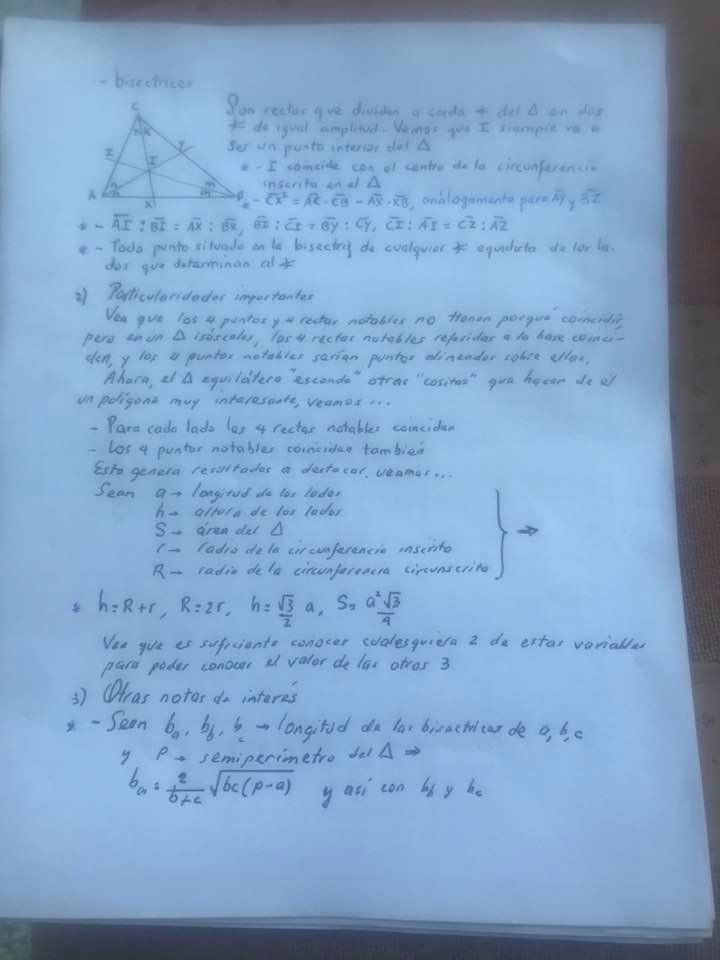 - bisectrices
Son rectas que dividen a cada ∢ del Δ en dos
∢ de igual amplitud. Vemos que I siempre va a
ser un punto interior del Δ
* - I coincide con el centro de la circunferencia
inscrita en el Δ
* - C̅X̅² = A̅C̅ · C̅B̅ - A̅X̅ · X̅B̅, análogamente para A̅Y̅ y B̅Z̅
* - A̅I̅ : B̅I̅ = A̅X̅ : B̅X̅, B̅I̅ : C̅I̅ = B̅Y̅ : C̅Y̅, C̅I̅ : A̅I̅ = C̅Z̅ : A̅Z̅
* - Todo punto situado en la bisectriz de cualquier ∢ equidista de los la-
dos que determinan al ∢
C
Z
Y
I
A
X
B
2) Particularidades importantes
Vea que los 4 puntos y 4 rectas notables no tienen porqué coincidir,
pero en un Δ isósceles, las 4 rectas notables referidas a la base coinci-
den, y los 4 puntos notables serían puntos alineados sobre ellas.
Ahora, el Δ equilátero "esconde" otras "cositas" que hacen de él
un polígono muy interesante, veamos...
- Para cada lado las 4 rectas notables coinciden
- Los 4 puntos notables coinciden también
Esto genera resultados a destacar, veamos...
Sean a → longitud de los lados
h → altura de los lados
S → área del Δ
r → radio de la circunferencia inscrita
R → radio de la circunferencia circunscrita
} ⇒
* h=R+r, R=2r, h=√3/2 a, S=a²√3/4
Vea que es suficiente conocer cualesquiera 2 de estas variables
para poder conocer el valor de las otras 3
3) Otras notas de interés
* - Sean bₐ, b_b, b_c → longitud de las bisectrices de a, b, c
y P → semiperímetro del Δ ⇒
bₐ = 2/(b+c) √(bc(p-a)) y así con b_b y b_c